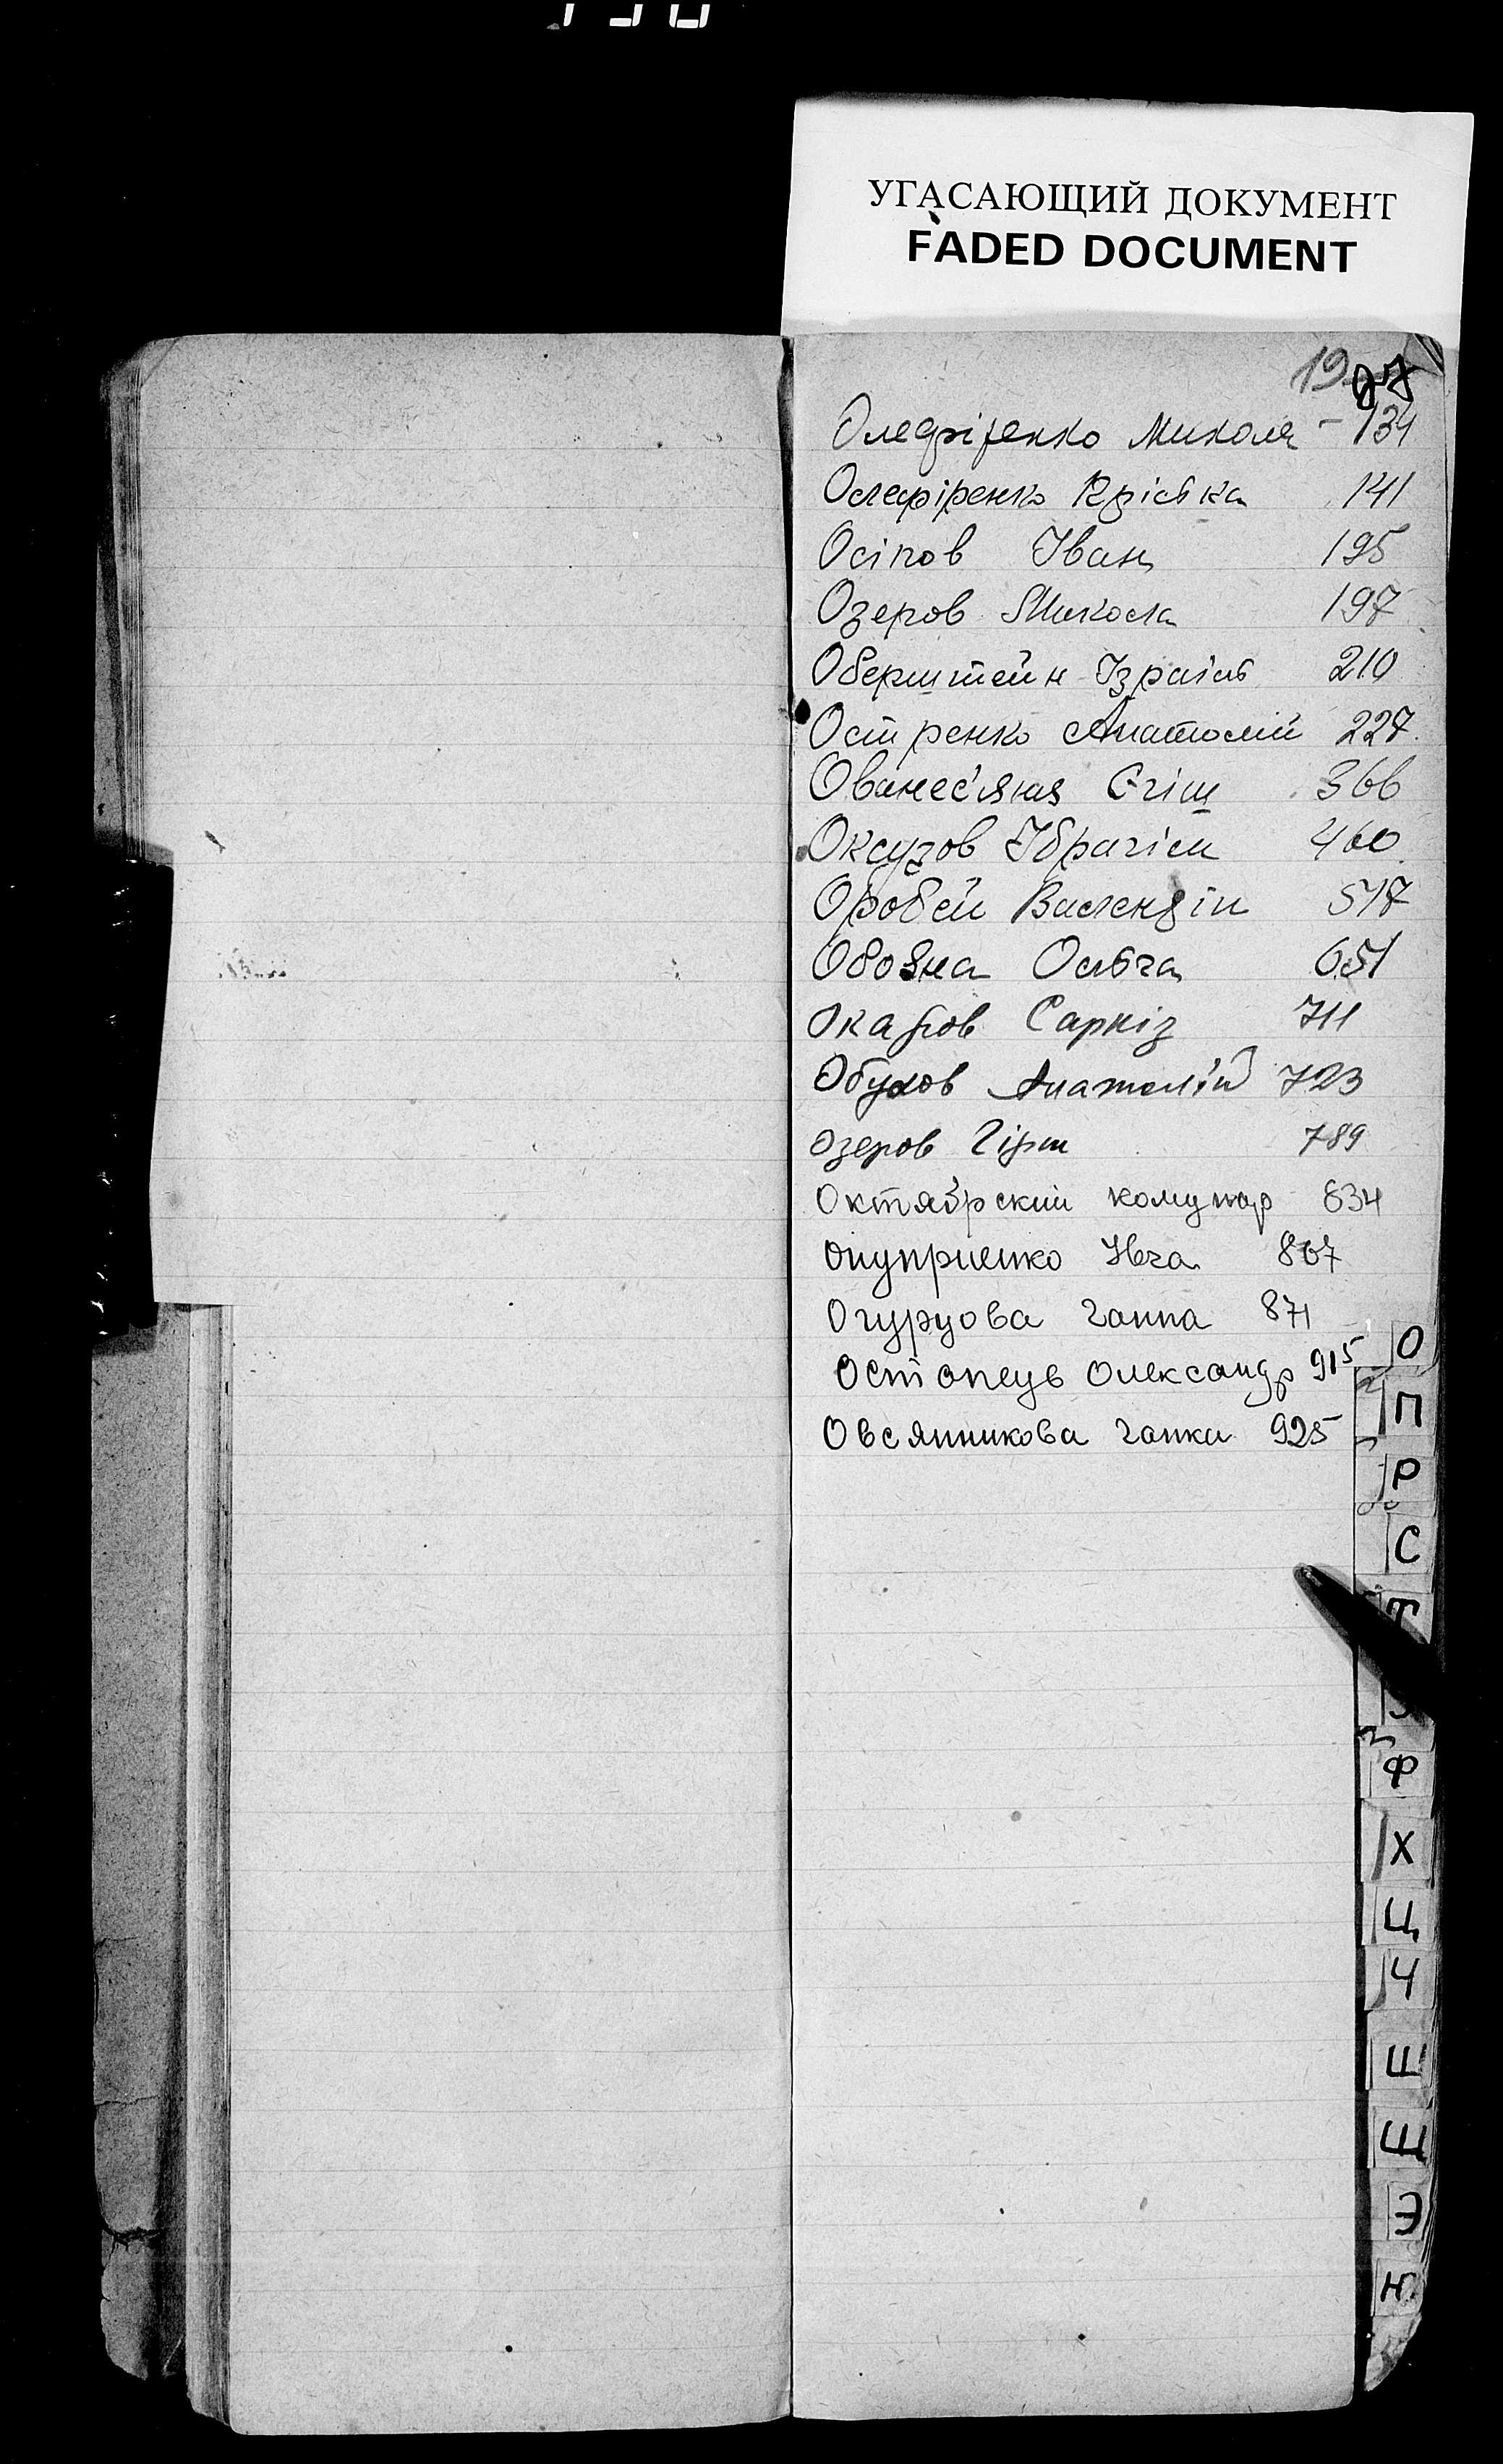 УГАСАЮЩИЙ ДОКУМЕНТ
FADED DOCUMENT
19
Олефіренко Микола - 134
Олефіренко Крістка 141
Осіпов Іван 195
Озеров Микола 197
Оберштейн Ізраїль 210
Остренко Анатолій 227
Ованес'янц 366
Оксузов Ібрагім 460
Оробей Валендін 517
Обозна Ольга 651
Окатов Саркіз 711
Обухов Анатолій 723
Озеров Гірш 789
Октябрский комунар 834
Онуприенко Інга 867
Огурцова Ганна 871
Остапець Олександр 915
Овсянникова Ганна 925
О
П
Р
С
Т
Ф
Х
Ц
Ч
Ш
Щ
Э